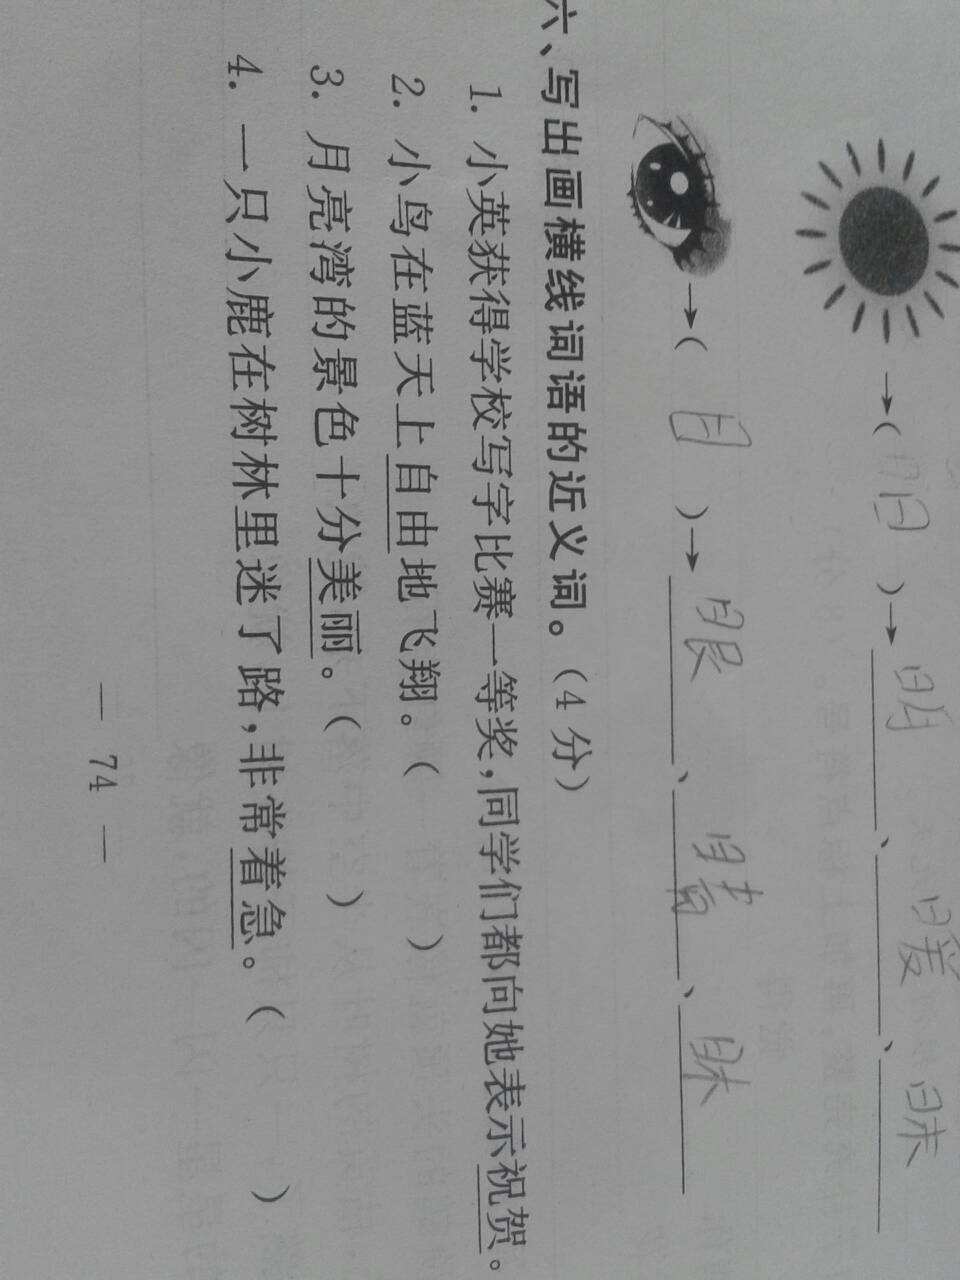 →( 日 )→ 明 、 暖 、 昧
→( 目 )→ 眼 、 睛 、 眛
六、写出画横线词语的近义词。(4分)
1. 小英获得学校写字比赛一等奖,同学们都向她表示祝贺。
2. 小鸟在蓝天上自由地飞翔。( )
3. 月亮湾的景色十分美丽。( )
4. 一只小鹿在树林里迷了路,非常着急。( )
— 74 —